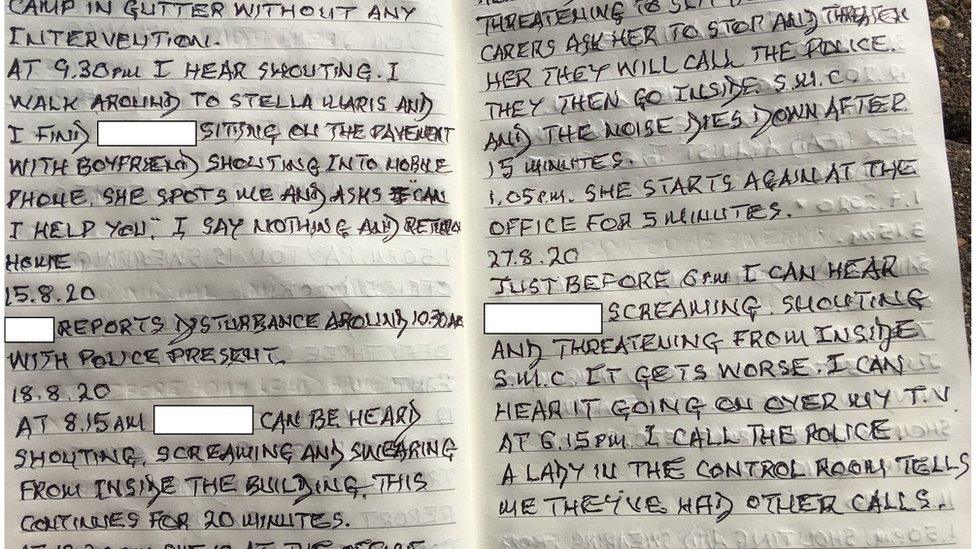 CAMP IN GUTTER WITHOUT ANY
INTERVENTION.
AT 9.30PM I HEAR SHOUTING. I
WALK AROUND TO STELLA MARIS AND
I FIND SITTING ON THE PAVEMENT
WITH BOYFRIEND SHOUTING INTO MOBILE
PHONE. SHE SPOTS ME AND ASKS "CAN
I HELP YOU." I SAY NOTHING AND RETURN
HOME
15.8.20
REPORTS DISTURBANCE AROUND 10.30AM
WITH POLICE PRESENT.
18.8.20
AT 8.15AM CAN BE HEARD
SHOUTING, SCREAMING AND SWEARING
FROM INSIDE THE BUILDING. THIS
CONTINUES FOR 20 MINUTES.
SHE IS AT THE OFFICE
THREATENING TO
CARERS ASK HER TO STOP AND THREATEN
HER THEY WILL CALL THE POLICE.
THEY THEN GO INSIDE S.M.C
AND THE NOISE DIES DOWN AFTER
15 MINUTES.
1.05PM. SHE STARTS AGAIN AT THE
OFFICE FOR 5 MINUTES.
27.8.20
JUST BEFORE 6PM I CAN HEAR
SCREAMING, SHOUTING
AND THREATENING FROM INSIDE
S.M.C IT GETS WORSE. I CAN
HEAR IT GOING ON OVER MY T.V.
AT 6.15PM. I CALL THE POLICE
A LADY IN THE CONTROL ROOM TELLS
ME THEY'VE HAD OTHER CALLS.